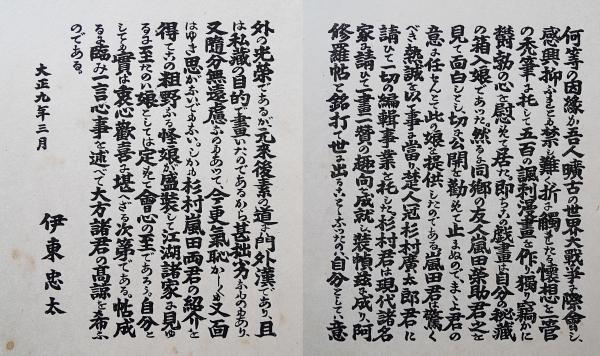 何等の因縁か吾人曠古の世界大戰爭に際會し、
感興抑ふれども禁じ難く折に觸れたる懷想を一管
の禿筆に托して五百の諷刺漫畫を作り獨り竊かに
鬱勃の心を慰めて居た。即ちこの戲畫は自分秘藏
の箱入娘であつた。然るに同郷の友人嵐田榮助君之を
見て面白しとし、切に公開を勸めて止まぬのでまゝよ君の
意に任せんとて此の娘を提供したのである。嵐田君は驚く
べき熱誠を以て事に當り楚人冠杉村廣太郎君に
請ひて一切の編輯事業を托し杉村君は現代諸名
家に請ひて一畫一贊の趣向を成就し裝幀茲に成り阿
修羅帖と銘打て世に出ることゝなつたのは自分として、意
外の光榮であるが、元來後素の道は門外漢であり、且
は私藏の目的で畫いたのであるから、甚拙劣なものもあり、
又隨分無遠慮なものもあつて、今更氣恥かしく又面
はゆき思がないでもない。しかも杉村嵐田両君の紹介を
得てこの粗野なる怪娘が盛裝して江湖諸家に見ゆ
るに至たのは娘としては定めて會心の至であらう。自分と
しても實は衷心歡喜に堪へざる次第である。帖成
るに臨み一言心事を述べて大方諸君の高諒を希ふ
のである。
大正九年三月
伊東忠太